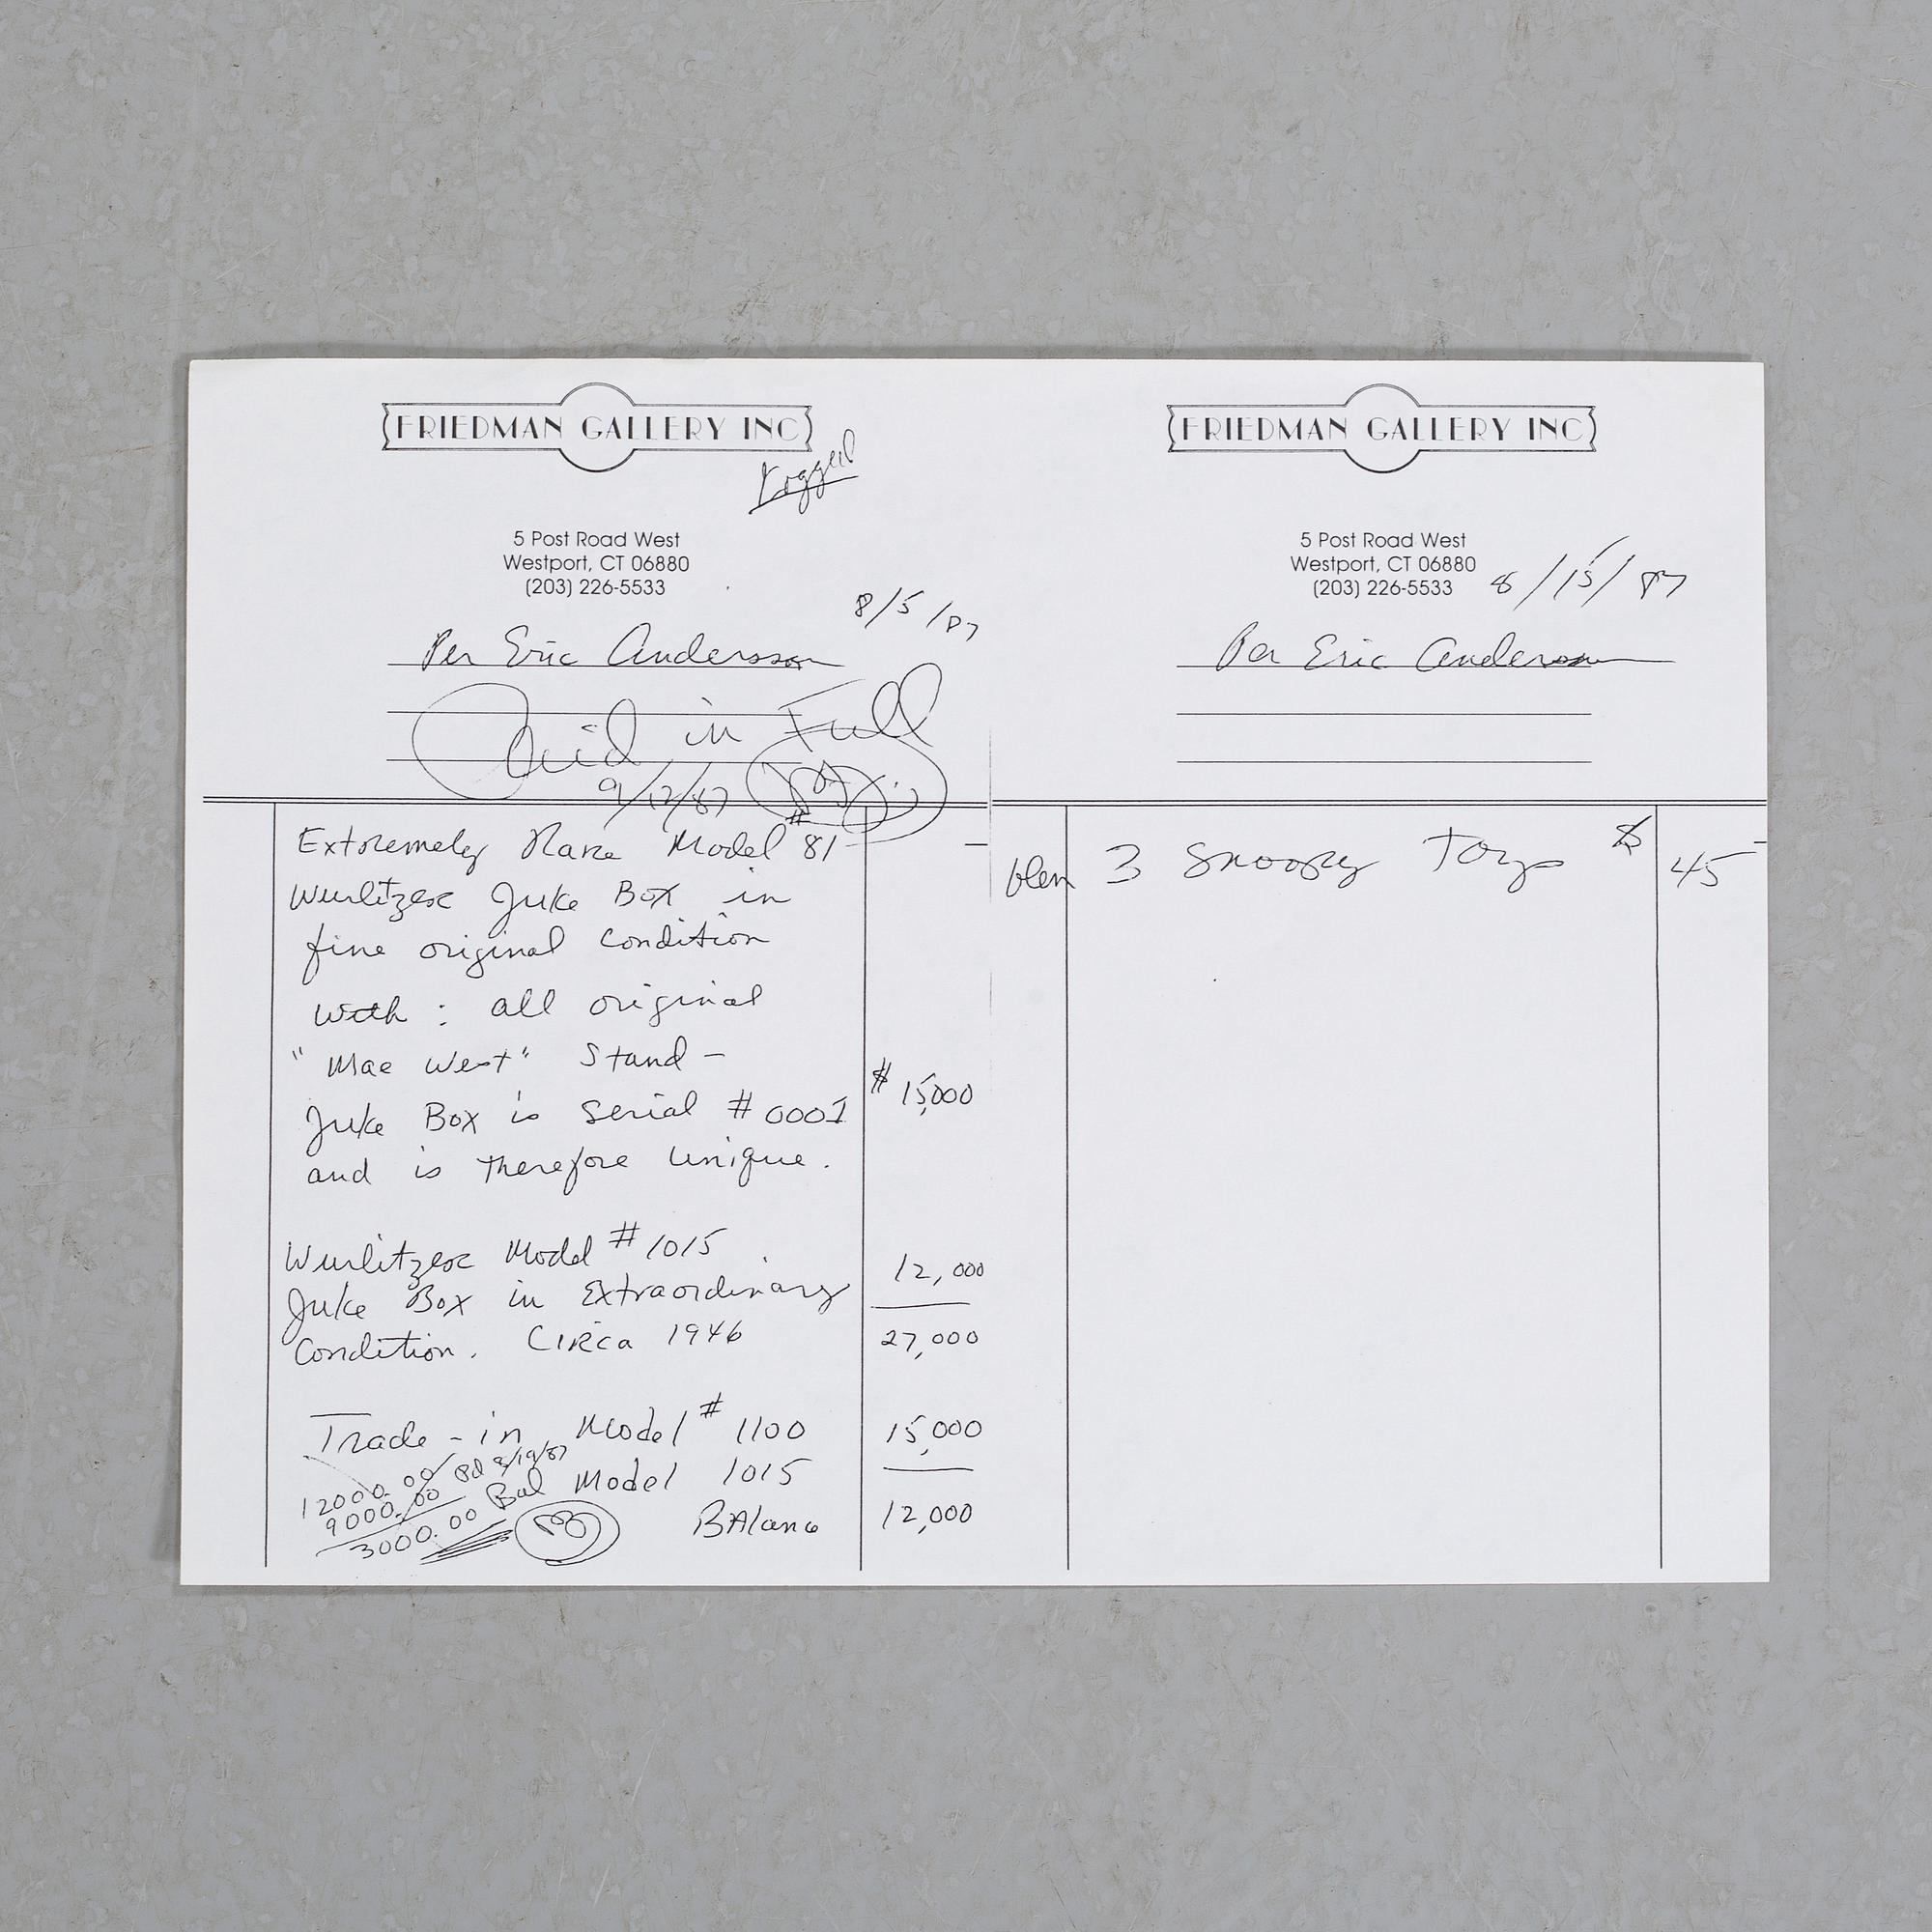 FRIEDMAN GALLERY INC
Logged
5 Post Road West
Westport, CT 06880
(203) 226-5533
8/5/87
Per Eric Andersson
Paid in Full
9/12/87
Extremely Rare Model #81
Wurlitzer Juke Box in
fine original condition
with : all original
"Mae West" Stand -
Juke Box is Serial # 0001
$ 15,000
and is therefore unique.
Wurlitzer Model # 1015
Juke Box in Extraordinary
12,000
Condition. Circa 1946
27,000
Trade-in Model # 1100
15,000
12000.00 Pd 8/19/87
9000.00 Bal Model 1015
3000.00
BAlance 12,000
FRIEDMAN GALLERY INC
5 Post Road West
Westport, CT 06880
(203) 226-5533
8/15/87
Per Eric Anderson
3 Snoopy Toys $ 45